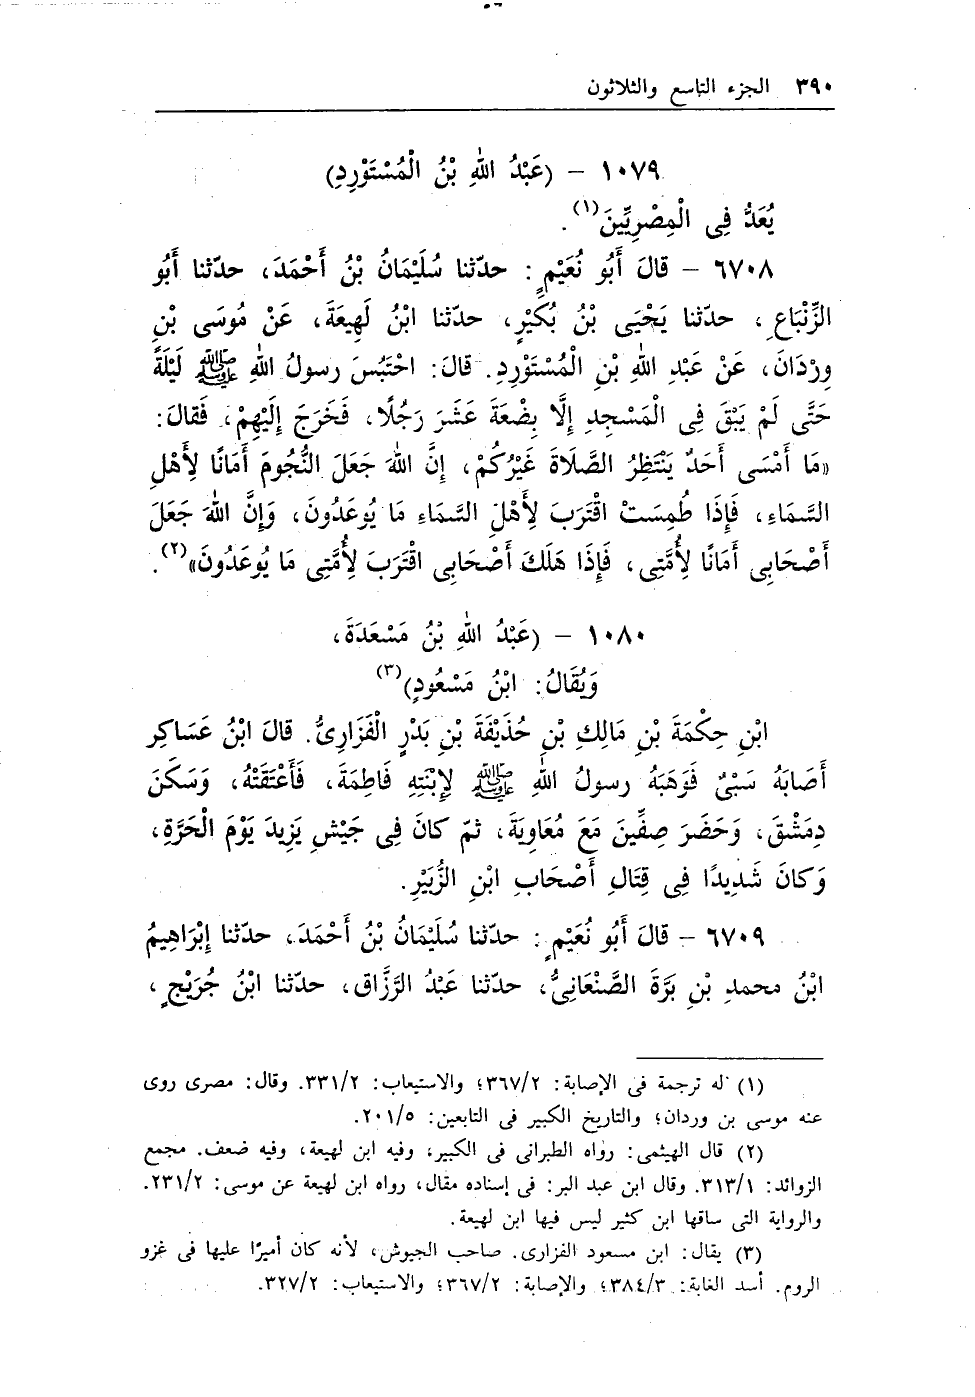 ٣٩٠ الجزء التاسع والثلاثون
١٠٧٩ - (عَبْدُ اللهِ بْنُ الْمُسْتَوْرِدِ)
يُعَدُّ فِى الْمِصْرِيِّينَ(١).
٦٧٠٨ - قالَ أَبُو نُعَيْمٍ: حدّثنا سُلَيْمَانُ بْنُ أَحْمَدَ، حدّثنا أَبُو
الزِّنْبَاعِ، حدّثنا يَحْيَى بْنُ بُكَيْرٍ، حدّثنا ابْنُ لَهِيعَةَ، عَنْ مُوسَى بْنِ
وِرْدَانَ، عَنْ عَبْدِ اللهِ بْنِ الْمُسْتَوْرِدِ. قالَ: احْتَبَسَ رسولُ اللهِ ﷺ لَيْلَةً
حَتَّى لَمْ يَبْقَ فِى الْمَسْجِدِ إِلَّا بِضْعَةَ عَشَرَ رَجُلًا، فَخَرَجَ إِلَيْهِمْ، فَقالَ:
«مَا أَمْسَى أَحَدٌ يَنْتَظِرُ الصَّلَاةَ غَيْرُكُمْ، إِنَّ اللهَ جَعَلَ النُّجُومَ أَمَانًا لِأَهْلِ
السَّمَاءِ، فَإِذَا طُمِسَتْ اقْتَرَبَ لِأَهْلِ السَّمَاءِ مَا يُوعَدُونَ، وَإِنَّ اللهَ جَعَلَ
أَصْحَابِى أَمَانًا لِأُمَّتِى، فَإِذَا هَلَكَ أَصْحَابِى اقْتَرَبَ لِأُمَّتِى مَا يُوعَدُونَ»(٢).
١٠٨٠ - (عَبْدُ اللهِ بْنُ مَسْعَدَةَ،
وَيُقَالُ: ابْنُ مَسْعُودٍ)(٣)
ابْنِ حِكْمَةَ بْنِ مَالِكِ بْنِ حُذَيْفَةَ بْنِ بَدْرٍ الْفَزَارِىُّ. قالَ ابْنُ عَسَاكِر
أَصَابَهُ سَبْىٌ فَوَهَبَهُ رسولُ اللهِ ﷺ لِإِبْنَتِهِ فَاطِمَةَ، فَأَعْتَقَتْهُ، وَسَكَنَ
دِمَشْقَ، وَحَضَرَ صِفِّينَ مَعَ مُعَاوِيَةَ، ثمّ كانَ فِى جَيْشِ يَزِيدَ يَوْمَ الْحَرَّةِ،
وَكانَ شَدِيدًا فِى قِتَالِ أَصْحَابِ ابْنِ الزُّبَيْرِ.
٦٧٠٩ - قالَ أَبُو نُعَيْمٍ: حدّثنا سُلَيْمَانُ بْنُ أَحْمَدَ، حدّثنا إِبْرَاهِيمُ
ابْنُ محمدِ بْنِ بَرَّةَ الصَّنْعَانِىُّ، حدّثنا عَبْدُ الرَّزَّاق، حدّثنا ابْنُ جُرَيْجٍ،
(١) له ترجمة فى الإصابة: ٣٦٧/٢؛ والاستيعاب: ٣٣١/٢. وقال: مصرى روى
عنه موسى بن وردان؛ والتاريخ الكبير فى التابعين: ٢٠١/٥.
(٢) قال الهيثمى: رواه الطبرانى فى الكبير، وفيه ابن لهيعة، وفيه ضعف. مجمع
الزوائد: ٣١٣/١. وقال ابن عبد البر: فى إسناده مقال، رواه ابن لهيعة عن موسى: ٢٣١/٢.
والرواية التى ساقها ابن كثير ليس فيها ابن لهيعة.
(٣) يقال: ابن مسعود الفزارى. صاحب الجيوش، لأنه كان أميرًا عليها فى غزو
الروم. أسد الغابة: ٣٨٤/٣؛ والإصابة: ٣٦٧/٢؛ والاستيعاب: ٣٢٧/٢.